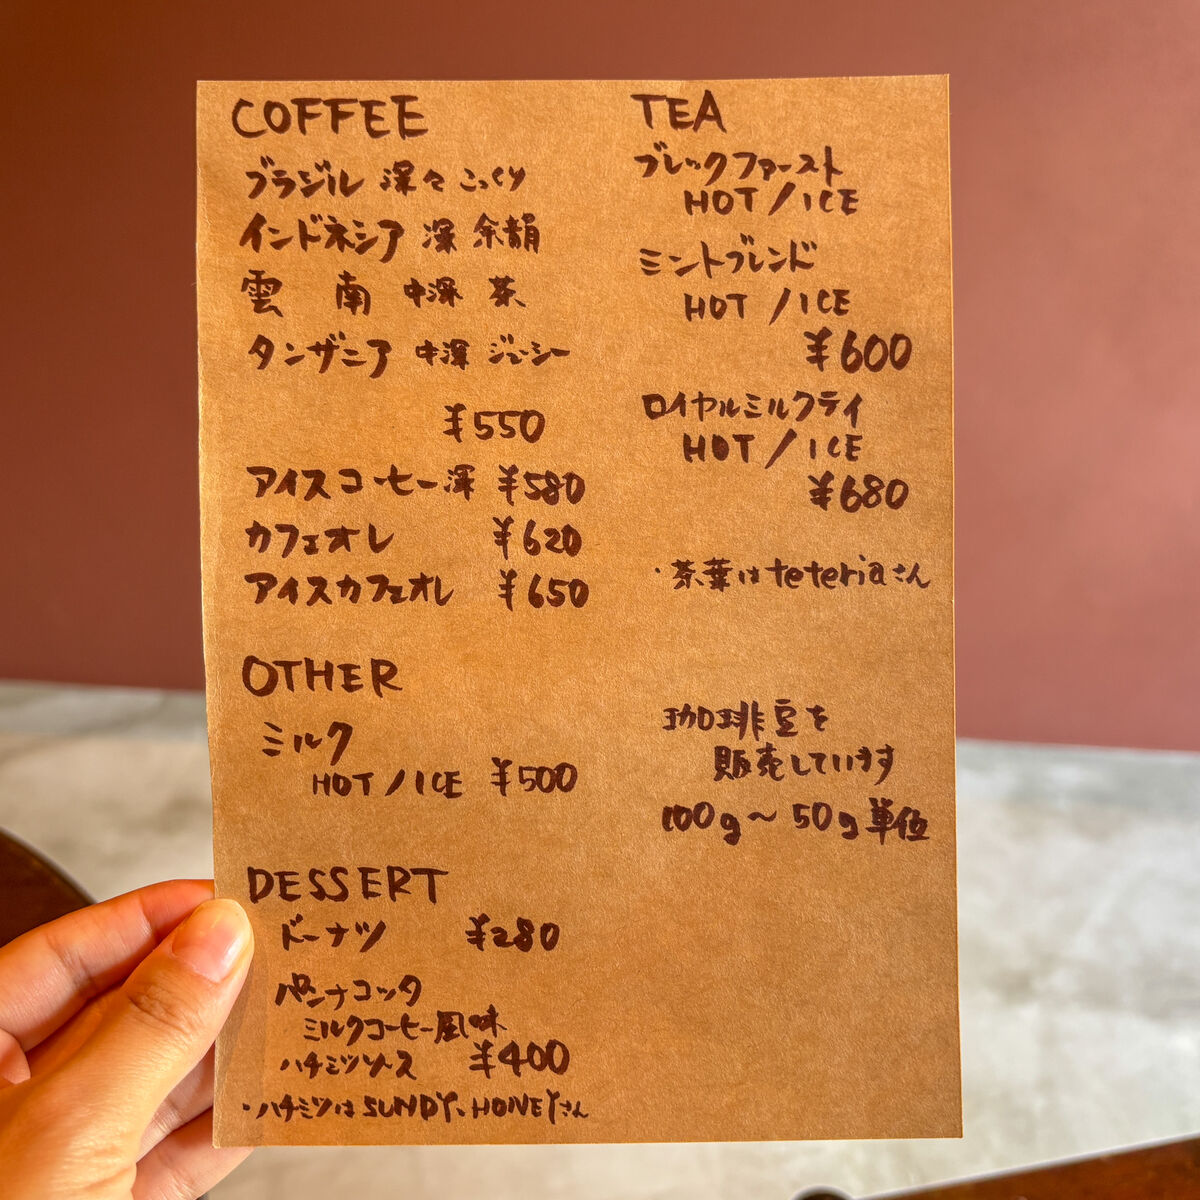 COFFEE
ブラジル 深々 こっくり
インドネシア 深 余韻
雲 南 中深 茶
タンザニア 中深 ジューシー
¥550
アイスコーヒー 深 ¥580
カフェオレ ¥620
アイスカフェオレ ¥650
OTHER
ミルク
HOT / ICE ¥500
DESSERT
ドーナツ ¥280
パンナコッタ
ミルクコーヒー風味
ハチミツソース ¥400
・ハチミツは SUNDY、HONEYさん
TEA
ブレックファースト
HOT / ICE
ミントブレンド
HOT / ICE
¥600
ロイヤルミルクティ
HOT / ICE
¥680
・茶葉は teteriaさん
珈琲豆を
販売しています
100g〜 50g単位